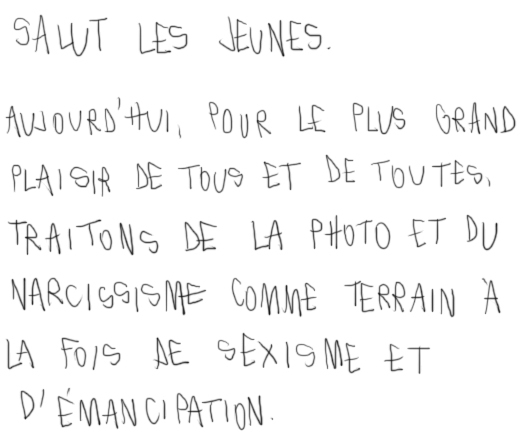 SALUT LES JEUNES.
AUJOURD'HUI, POUR LE PLUS GRAND
PLAISIR DE TOUS ET DE TOUTES,
TRAITONS DE LA PHOTO ET DU
NARCISSISME COMME TERRAIN À
LA FOIS DE SÉXISME ET
D'ÉMANCIPATION.